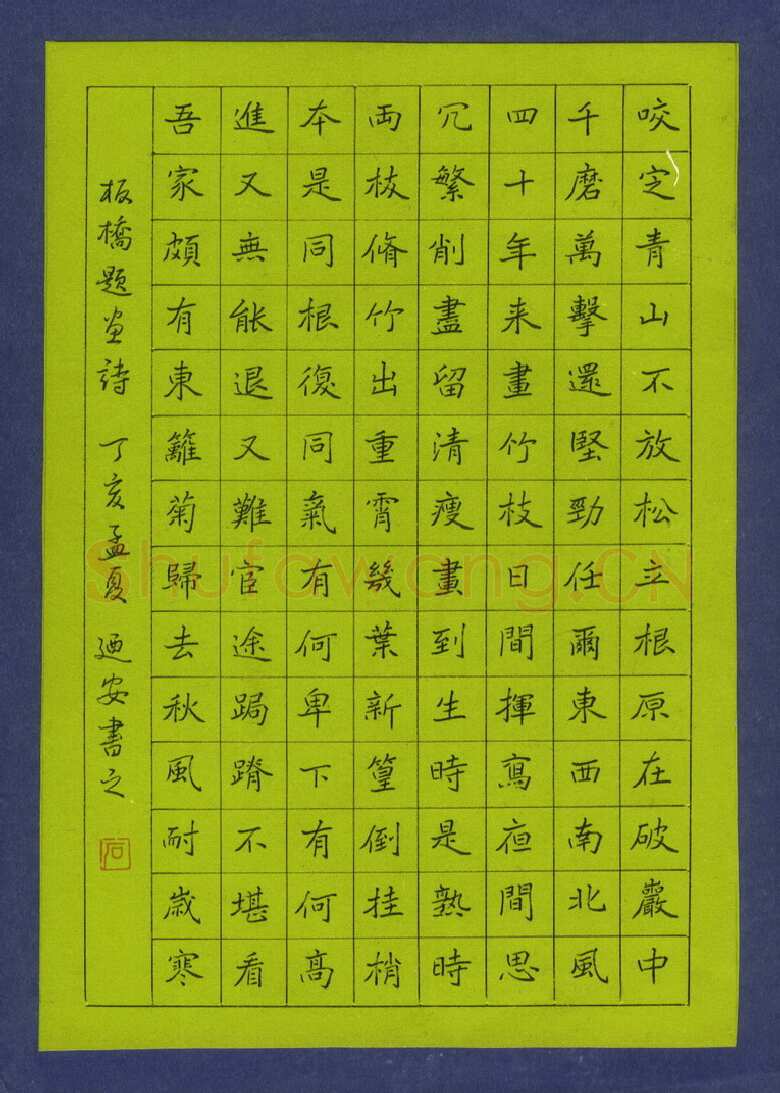 咬定青山不放松立根原在破巖中
千磨萬擊還堅勁任爾東西南北風
四十年来畫竹枝日間揮寫夜間思
冗繁削盡留清瘦畫到生時是熟時
両枝脩竹出重霄幾葉新篁倒挂梢
本是同根復同氣有何卑下有何高
進又無能退又難宦途跼蹐不堪看
吾家頗有東籬菊歸去秋風耐歲寒
板橋題畫詩 丁亥孟夏 廼安書之
石
Shufawang.CN